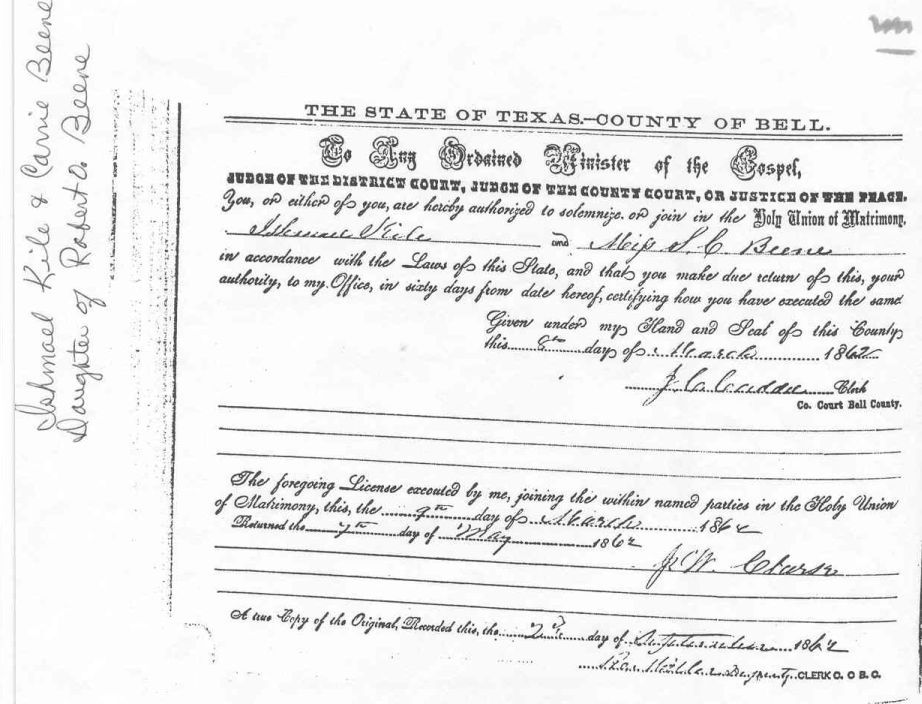 Ishmael Kile & Carrie Beene
Daughter of Robert A. Beene
THE STATE OF TEXAS.—COUNTY OF BELL.
To Any Ordained Minister of the Gospel,
JUDGE OF THE DISTRICT COURT, JUDGE OF THE COUNTY COURT, OR JUSTICE OF THE PEACE.
You, or either of you, are hereby authorized to solemnize or join in the Holy Union of Matrimony,
Ishmael Kile and Miss S. C. Beene
in accordance with the Laws of this State, and that you make due return of this, your
authority, to my Office, in sixty days from date hereof, certifying how you have executed the same
Given under my Hand and Seal of this County
this 8th day of March 1862
Clerk
Co. Court Bell County.
The foregoing License executed by me, joining the within named parties in the Holy Union
of Matrimony, this, the 9th day of March 1862
Returned the 7th day of May 1862
J. W.
A true Copy of the Original, Recorded this, the day of September 1862
Deputy CLERK C. C B. C.